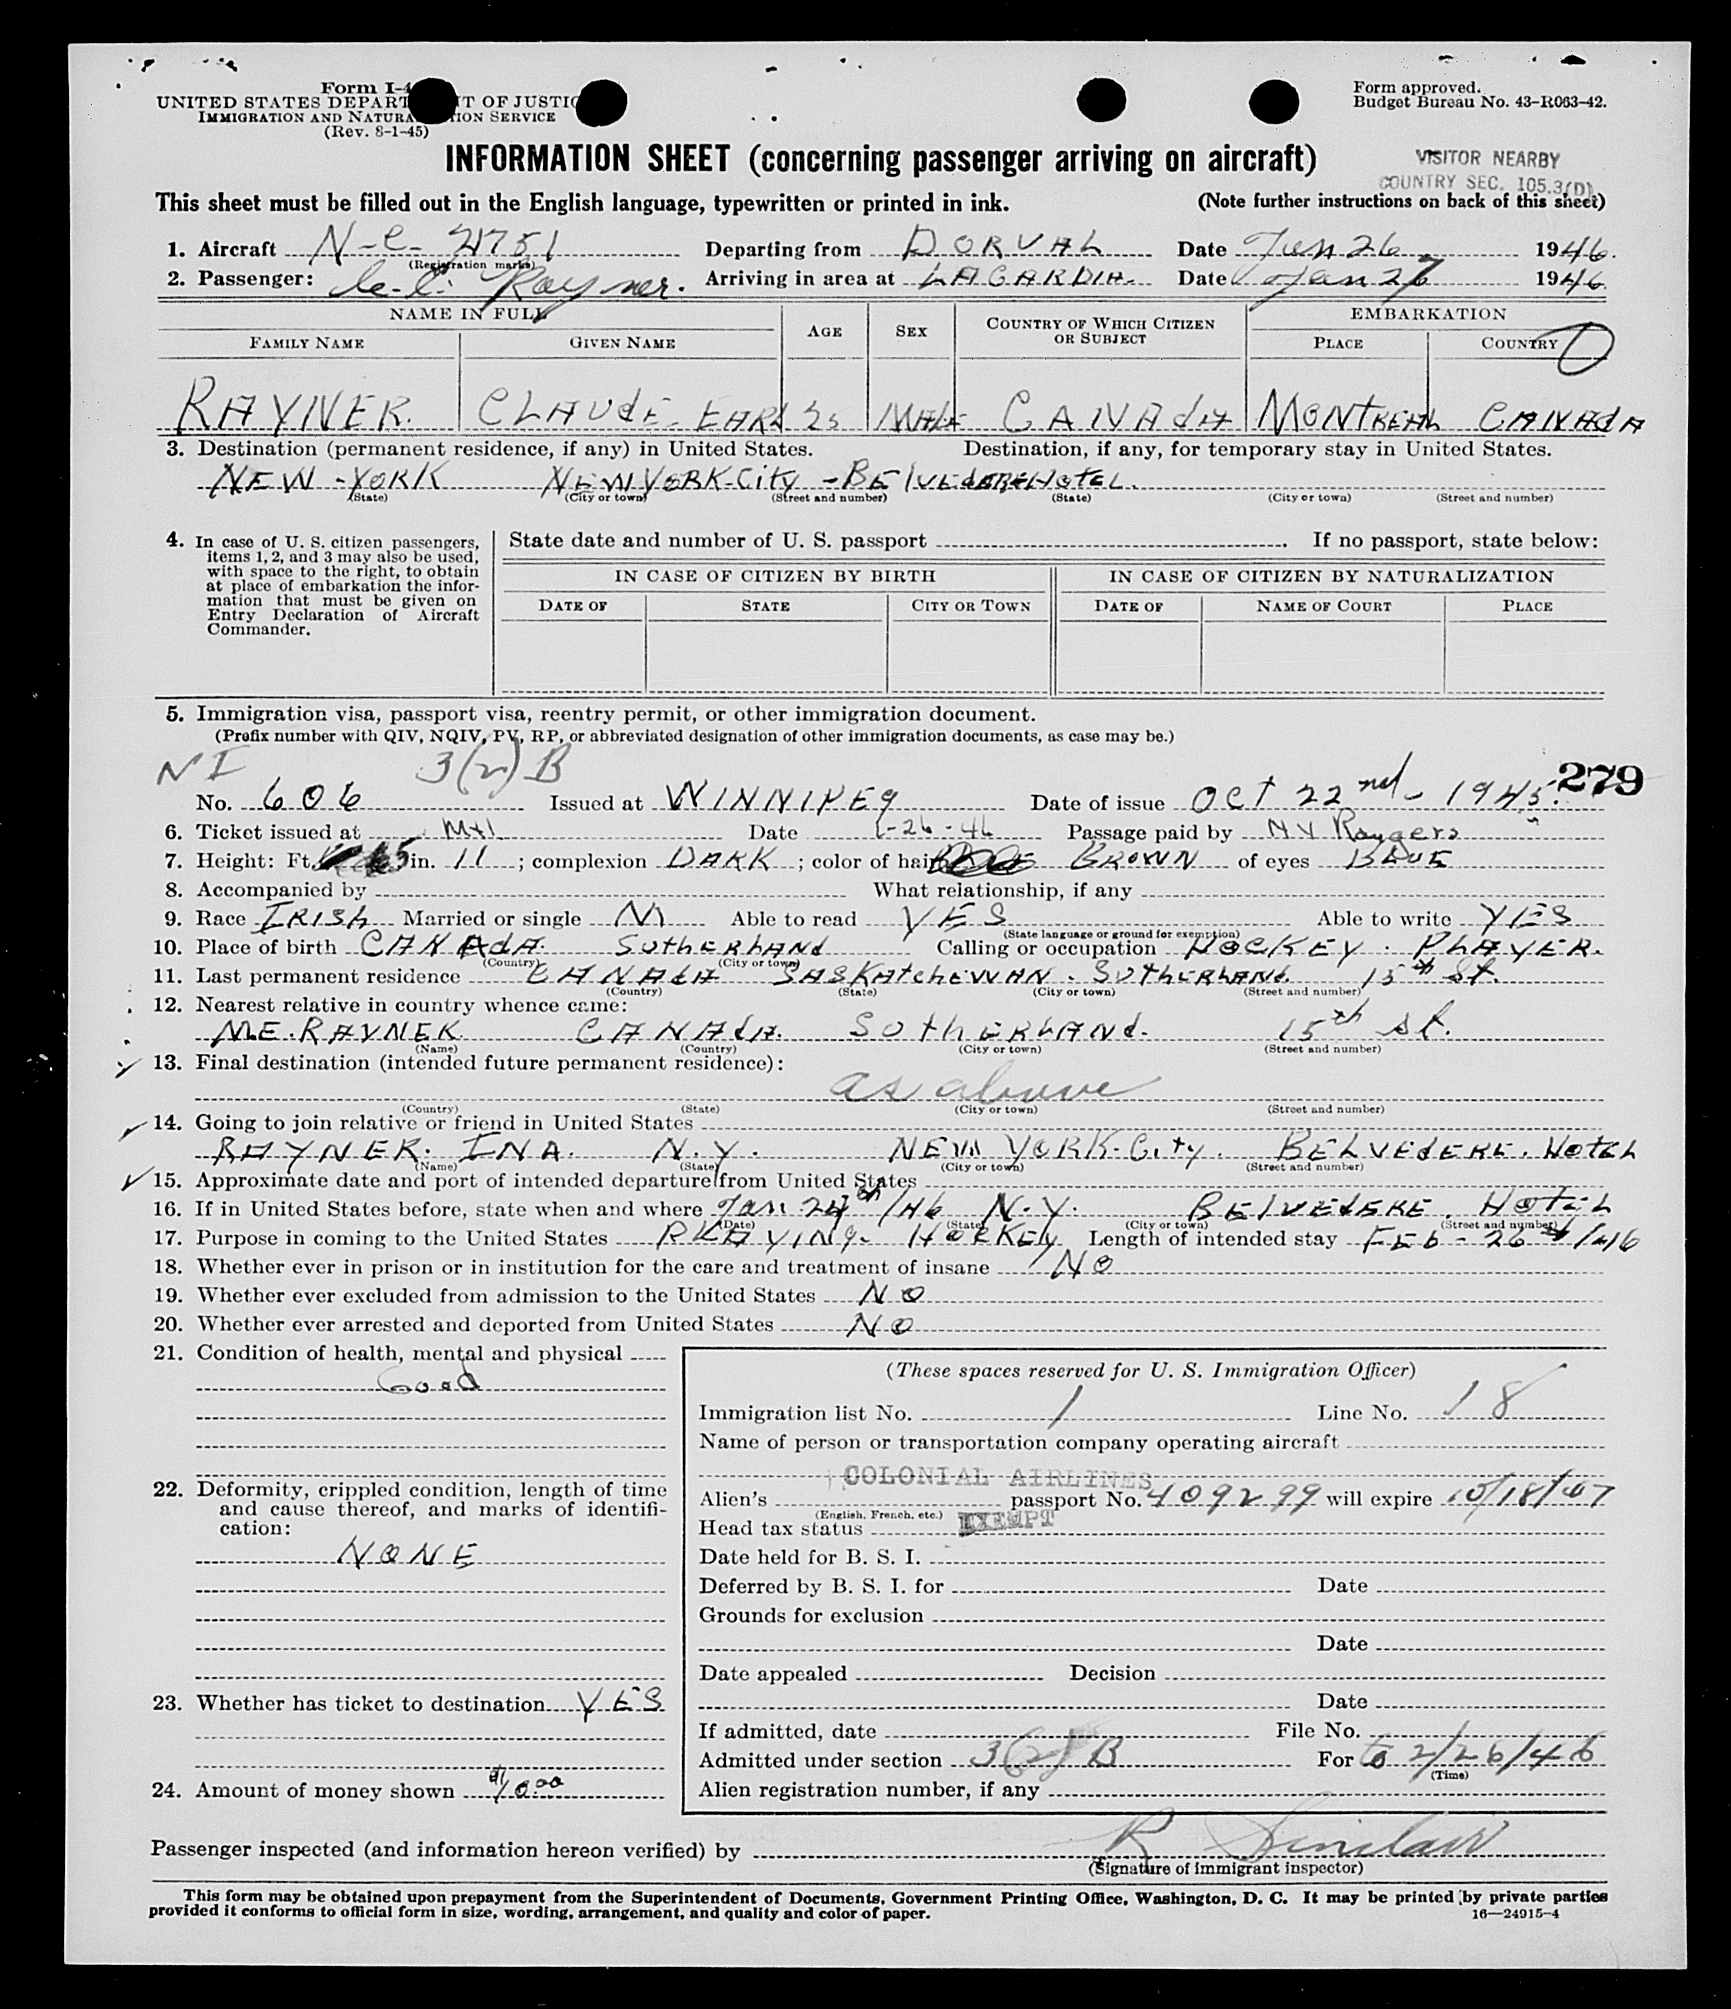 Form I-4
UNITED STATES DEPART T OF JUSTIC
IMMIGRATION AND NATURA ION SERVICE
(Rev. 8-1-45)
Form approved.
Budget Bureau No. 43-R063-42.
INFORMATION SHEET (concerning passenger arriving on aircraft)
VISITOR NEARBY
COUNTRY SEC. 105.3(D)
This sheet must be filled out in the English language, typewritten or printed in ink. (Note further instructions on back of this sheet)
1. Aircraft N-C- 21751 Departing from DORVAL Date Jan 26 1946.
(Registration marks)
2. Passenger: C.E. Rayner. Arriving in area at LAGARDIA. Date Jan 26 1946.
NAME IN FULL AGE SEX COUNTRY OF WHICH CITIZEN OR SUBJECT EMBARKATION
FAMILY NAME GIVEN NAME PLACE COUNTRY
RAYNER. CLAUdE- EARL 25 MALE CANAdA MONTREAL CANAdA
3. Destination (permanent residence, if any) in United States. Destination, if any, for temporary stay in United States.
NEW-YORK NEW YORK-City -BElvEdEREHotEL.
(State) (City or town) (Street and number) (State) (City or town) (Street and number)
4. In case of U. S. citizen passengers, items 1, 2, and 3 may also be used, with space to the right, to obtain at place of embarkation the information that must be given on Entry Declaration of Aircraft Commander.
State date and number of U. S. passport . If no passport, state below:
IN CASE OF CITIZEN BY BIRTH IN CASE OF CITIZEN BY NATURALIZATION
DATE OF STATE CITY OR TOWN DATE OF NAME OF COURT PLACE
5. Immigration visa, passport visa, reentry permit, or other immigration document.
(Prefix number with QIV, NQIV, PV, RP, or abbreviated designation of other immigration documents, as case may be.)
NI 3(2)B
279
No. 606 Issued at WINNIPEg Date of issue OCT 22nd - 1945.
6. Ticket issued at Mtl Date 1-26-46 Passage paid by NY Rangers
7. Height: Ft. 5 in. 11 ; complexion DARK ; color of hair BROWN of eyes BLUE
8. Accompanied by What relationship, if any
9. Race IRISh Married or single M Able to read YES Able to write YES
(State language or ground for exemption)
10. Place of birth CANAdA. SutHERLANd Calling or occupation HOCKEY. PLAYER.
(Country) (City or town)
11. Last permanent residence CANAdA SASKAtchEWAN. SuthERLANd. 15th St.
(Country) (State) (City or town) (Street and number)
12. Nearest relative in country whence came:
M.E. RAYNER CANAdA. SothERLANd. 15th St.
(Name) (Country) (City or town) (Street and number)
13. Final destination (intended future permanent residence):
as above
(Country) (State) (City or town) (Street and number)
14. Going to join relative or friend in United States
RAYNER. INA. N.Y. NEW YORK. City. BELVEdERE. HotEL
(Name) (State) (City or town) (Street and number)
15. Approximate date and port of intended departure from United States
16. If in United States before, state when and where Jan 24th/46 N.Y. BElVEdERE. HotEL
(Date) (State) (City or town) (Street and number)
17. Purpose in coming to the United States PLAYINg- HOCKEy Length of intended stay FEb - 26th/46
18. Whether ever in prison or in institution for the care and treatment of insane NO
19. Whether ever excluded from admission to the United States NO
20. Whether ever arrested and deported from United States NO
21. Condition of health, mental and physical
Good
22. Deformity, crippled condition, length of time and cause thereof, and marks of identification:
NONE
23. Whether has ticket to destination YES
24. Amount of money shown $10.00
(These spaces reserved for U. S. Immigration Officer)
Immigration list No. 1 Line No. 18
Name of person or transportation company operating aircraft
COLONIAL AIRLINES
Alien's passport No. 409299 will expire 10/18/47
(English, French, etc.)
Head tax status EXEMPT
Date held for B. S. I.
Deferred by B. S. I. for Date
Grounds for exclusion
Date
Date appealed Decision
Date
If admitted, date File No.
Admitted under section 3(2)B For to 2/26/46
(Time)
Alien registration number, if any
Passenger inspected (and information hereon verified) by R Sinclair
(Signature of immigrant inspector)
This form may be obtained upon prepayment from the Superintendent of Documents, Government Printing Office, Washington, D. C. It may be printed by private parties
provided it conforms to official form in size, wording, arrangement, and quality and color of paper.
16—24915-4